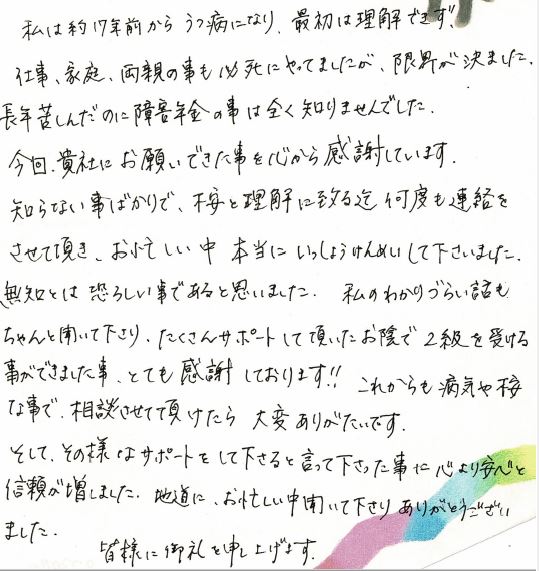 私は約17年前から うつ病になり、最初は理解できず、
仕事、家庭、両親の事も必死にやってましたが、限界が決ました。
長年苦しんだのに障害年金の事は全く知りませんでした。
今回、貴社にお願いできた事を心から感謝しています。
知らない事ばかりで、不安と理解に致る迄 何度も連絡を
させて頂き、お忙しい中 本当にいっしょうけんめいして下さいました。
無知とは恐ろしい事であると思いました。 私のわかりづらい話も
ちゃんと聞いて下さり、たくさんサポートして頂いたお陰で 2級を受ける
事ができました事、とても感謝しております!! これからも病気や不安
な事で、相談させて頂けたら 大変ありがたいです。
そして、その様なサポートをして下さると言って下さった事に心より安心と
信頼が増しました。地道に、お忙しい中聞いて下さり ありがとうござい
ました。
皆様に御礼を申し上げます。